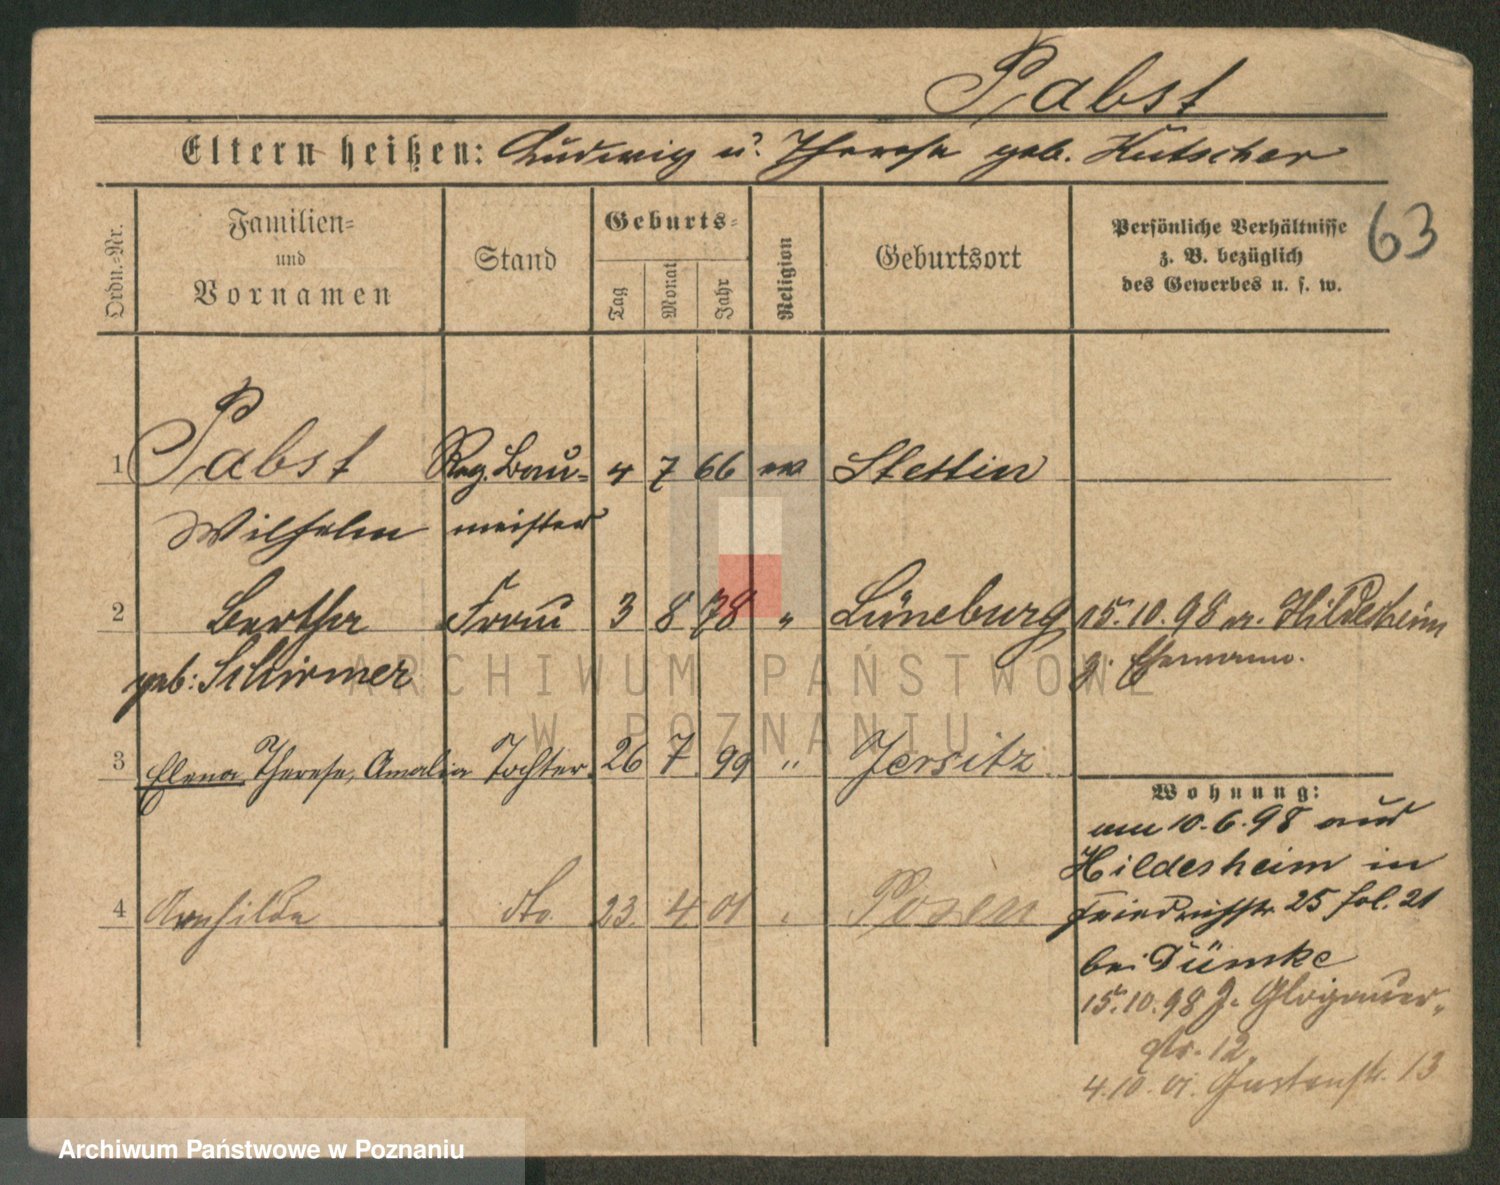 Pabst
Eltern heißen: Ludwig u. Therese geb. Kutscher
63
Ordn.-Nr.
Familien-
und
Vornamen
Stand
Geburts-
Tag
Monat
Jahr
Religion
Geburtsort
Persönliche Verhältnisse
z. B. bezüglich
des Gewerbes u. s. w.
1 Pabst Reg. Bau- 4 7 66 ev Stettin
Wilhelm meister
2 Bertha Frau 3 8 78 " Lüneburg 15.10.98 a. Hildesheim
geb: Schirmer z. Ehemann.
3 Elena, Therese, Amalia Tochter 26 7 99 " Jersitz
Wohnung:
am 10.6.98 aus
Hildesheim in
4 Arnhilde do. 23. 4 01 " Posen
Friedrichstr. 25 fol. 21
bei Dümke
15.10.98 J. Glogauer-
str. 12.
4.10.01. Gartenstr. 13
ARCHIWUM PAŃSTWOWE
W POZNANIU
Archiwum Państwowe w Poznaniu